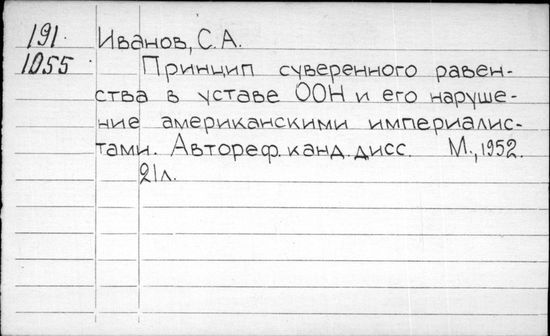 191 Иванов, С.А.
1055 Принцип суверенного равен-
ства в уставе ООН и его наруше-
ние американскими империалис-
тами. Автореф. канд. дисс. М., 1952.
21л.